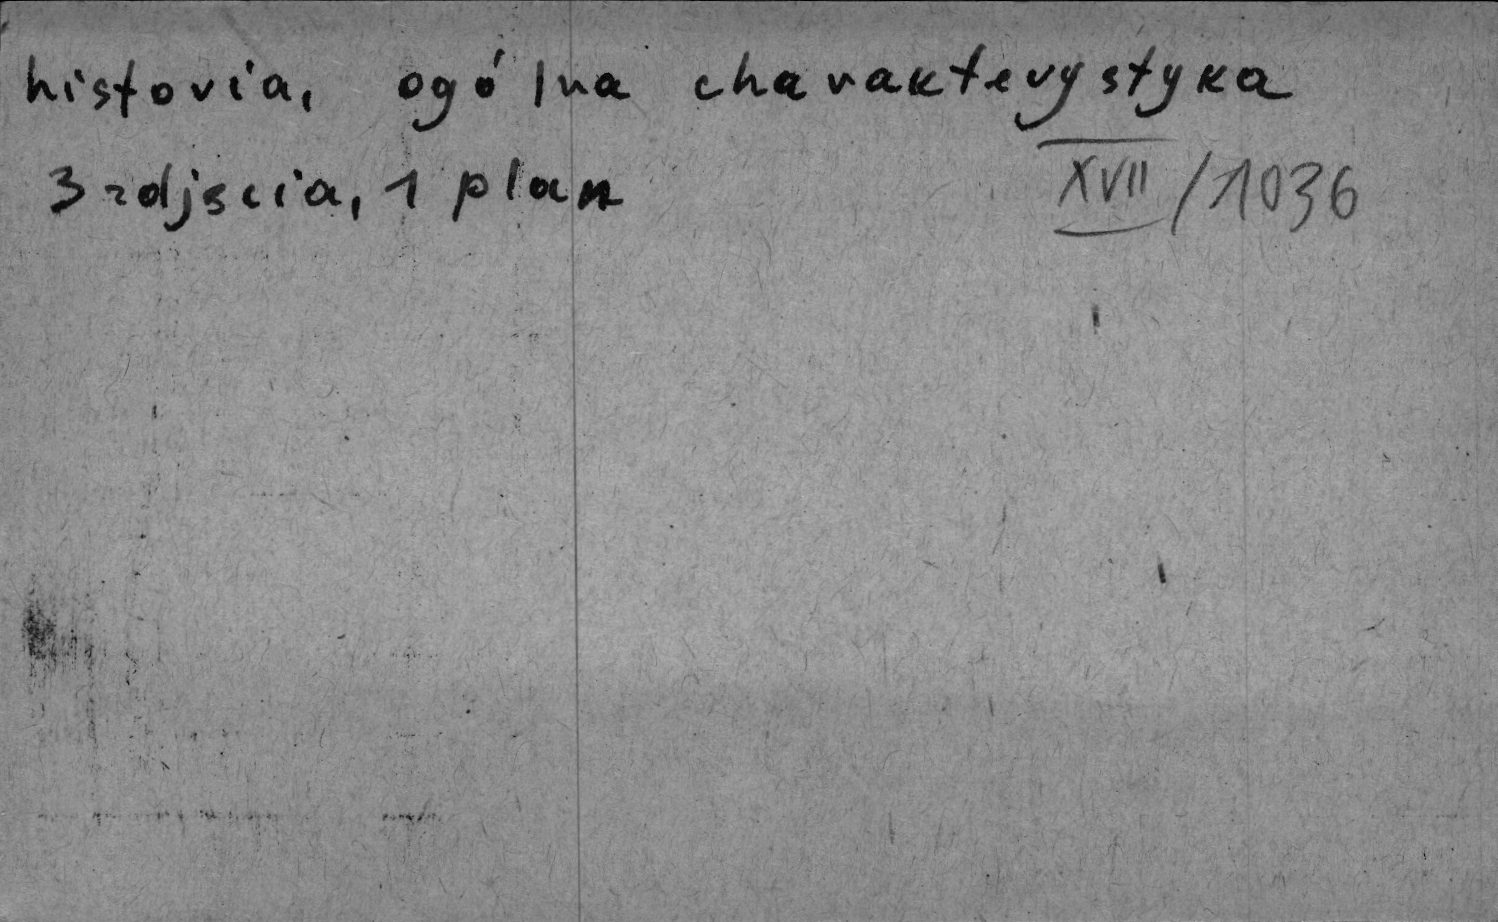 historia, ogólna charakterystyka
3 zdjscia, 1 plan
XVII/1036